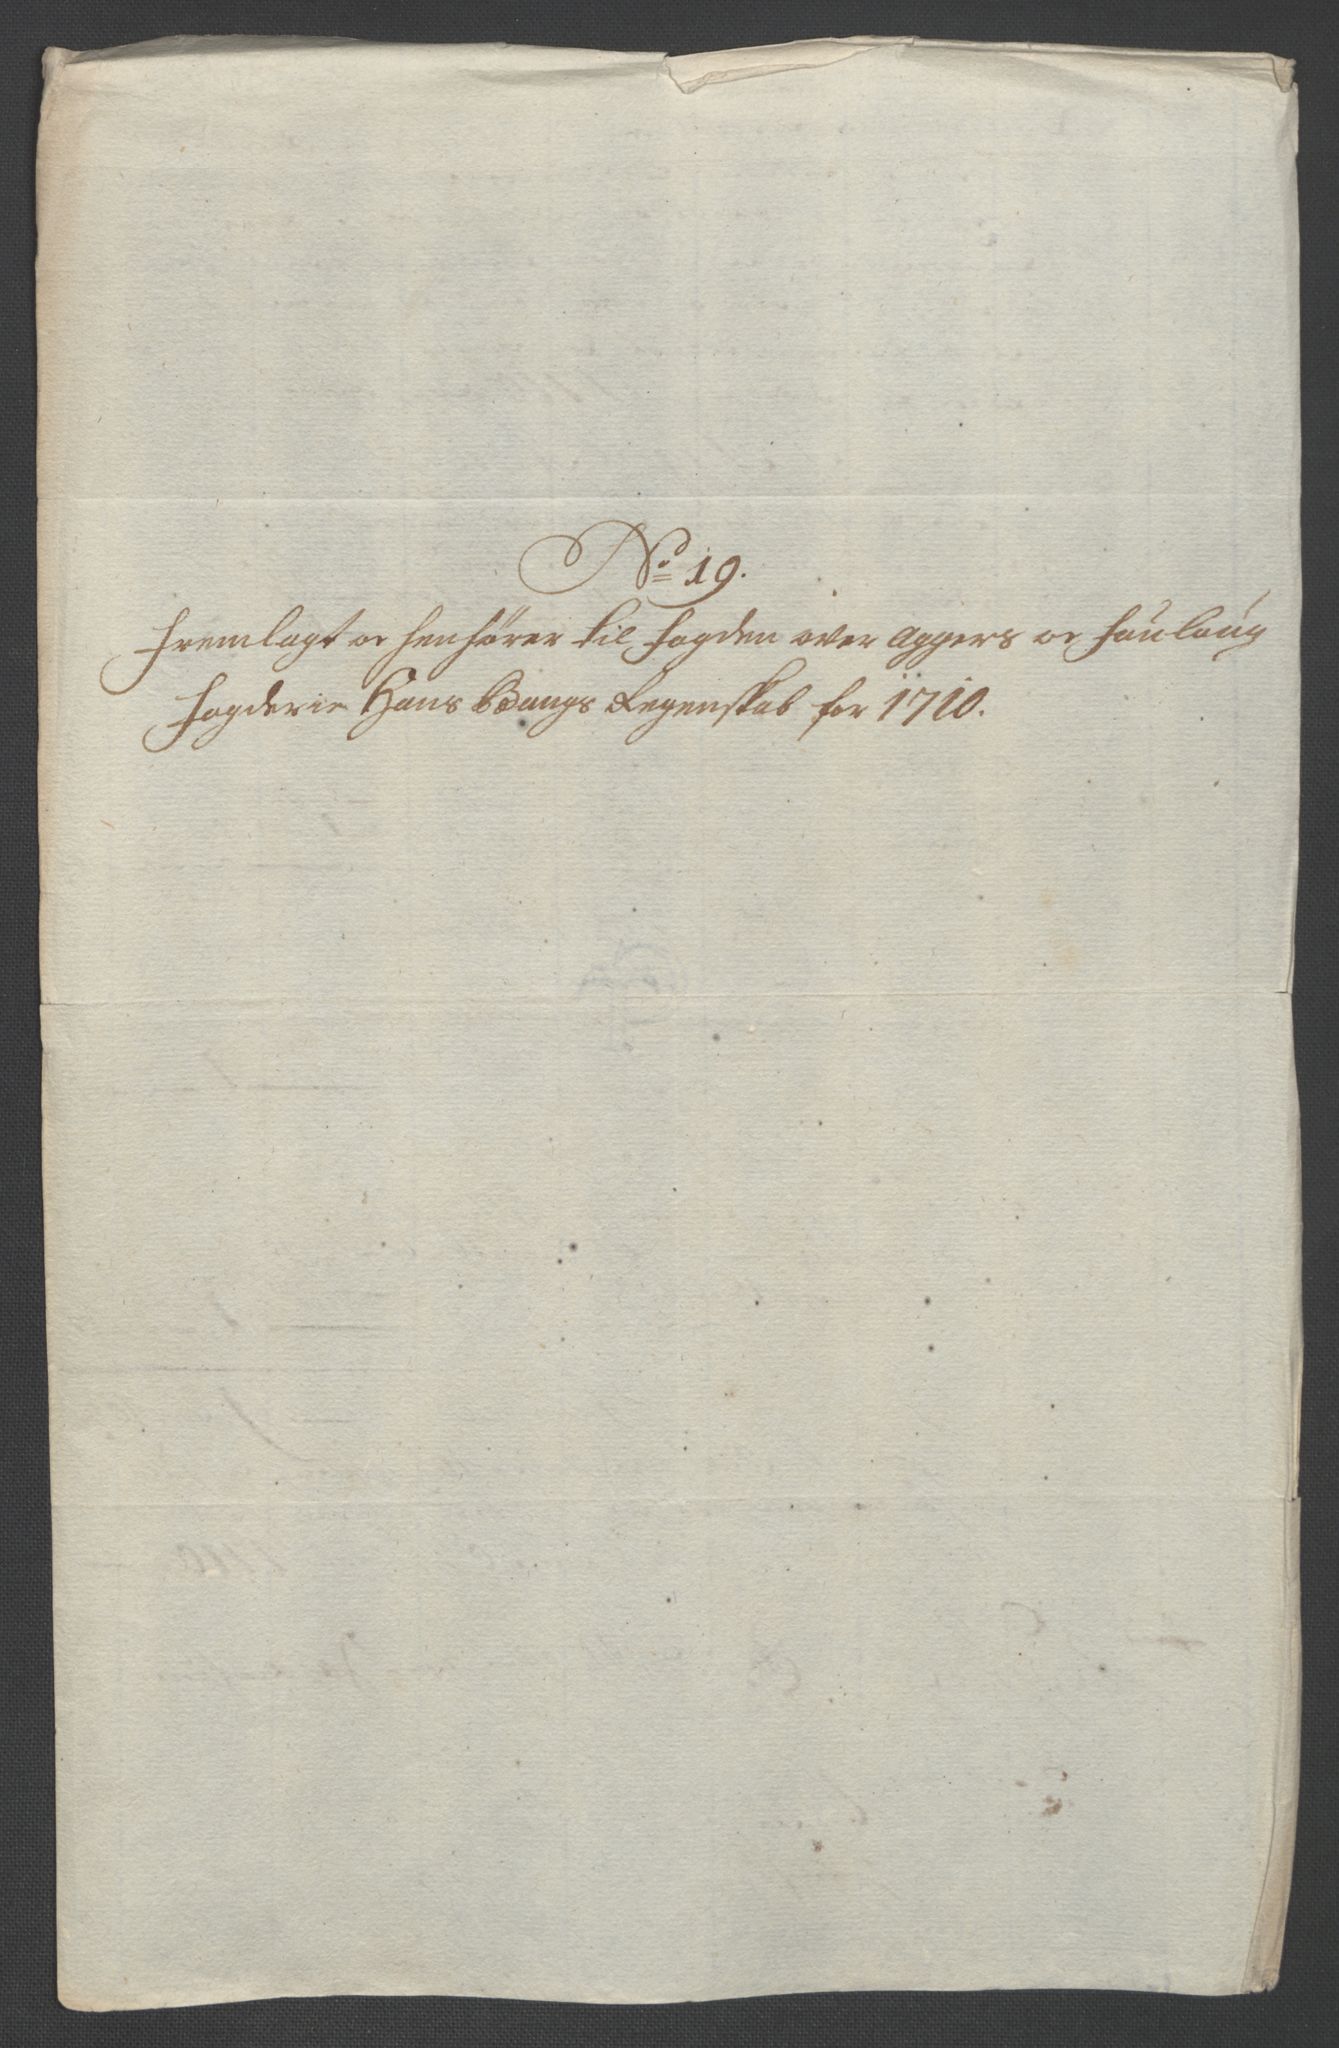 No 19.
Fremlagt oc henhører til fogden over Aggers oc fouloug
fogderie Hans Bangs Regenskab for 1710.